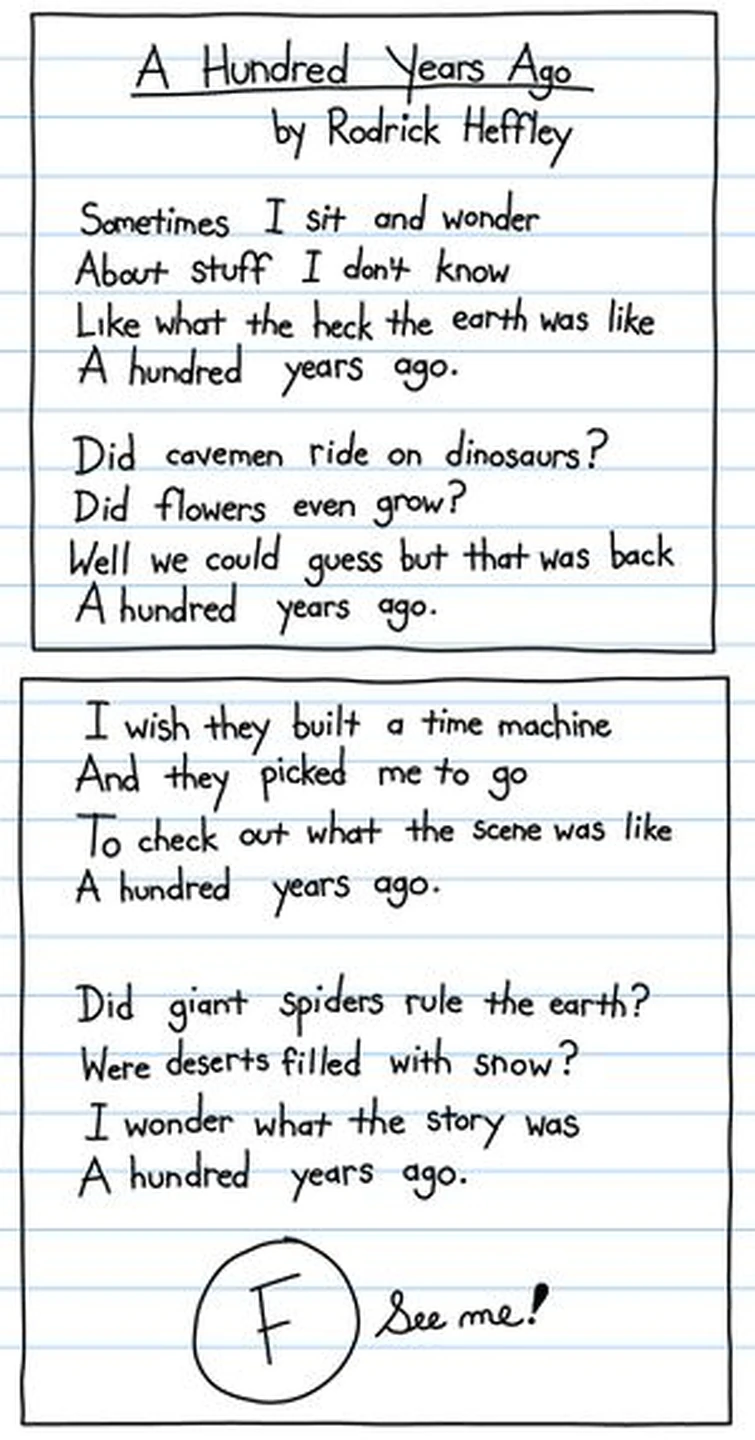 A Hundred Years Ago
by Rodrick Heffley
Sometimes I sit and wonder
About stuff I don't know
Like what the heck the earth was like
A hundred years ago.
Did cavemen ride on dinosaurs?
Did flowers even grow?
Well we could guess but that was back
A hundred years ago.
I wish they built a time machine
And they picked me to go
To check out what the scene was like
A hundred years ago.
Did giant spiders rule the earth?
Were deserts filled with snow?
I wonder what the story was
A hundred years ago.
F See me!